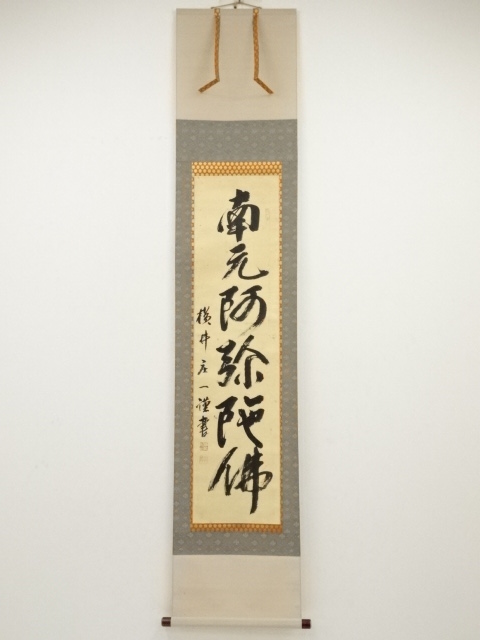 南无阿弥陀佛
横井庄一謹書